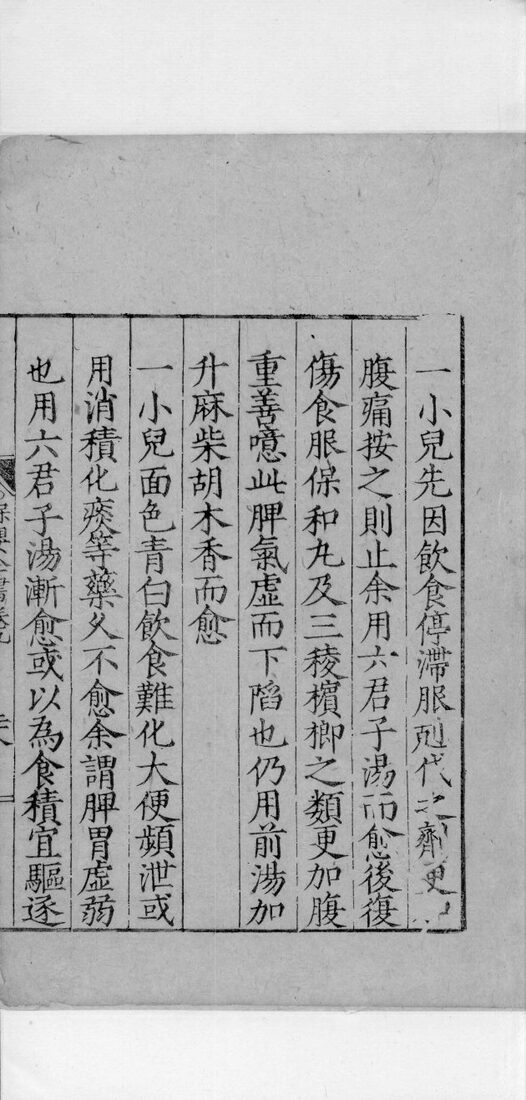 一小兒先因飲食停滯服剋伐之劑更
腹痛按之則止余用六君子湯而愈後復
傷食服保和丸及三稜檳榔之類更加腹
重善噫此脾氣虛而下陷也仍用前湯加
升麻柴胡木香而愈
一小兒面色青白飲食難化大便頻泄或
用消積化痰等藥久不愈余謂脾胃虛弱
也用六君子湯漸愈或以為食積宜驅逐